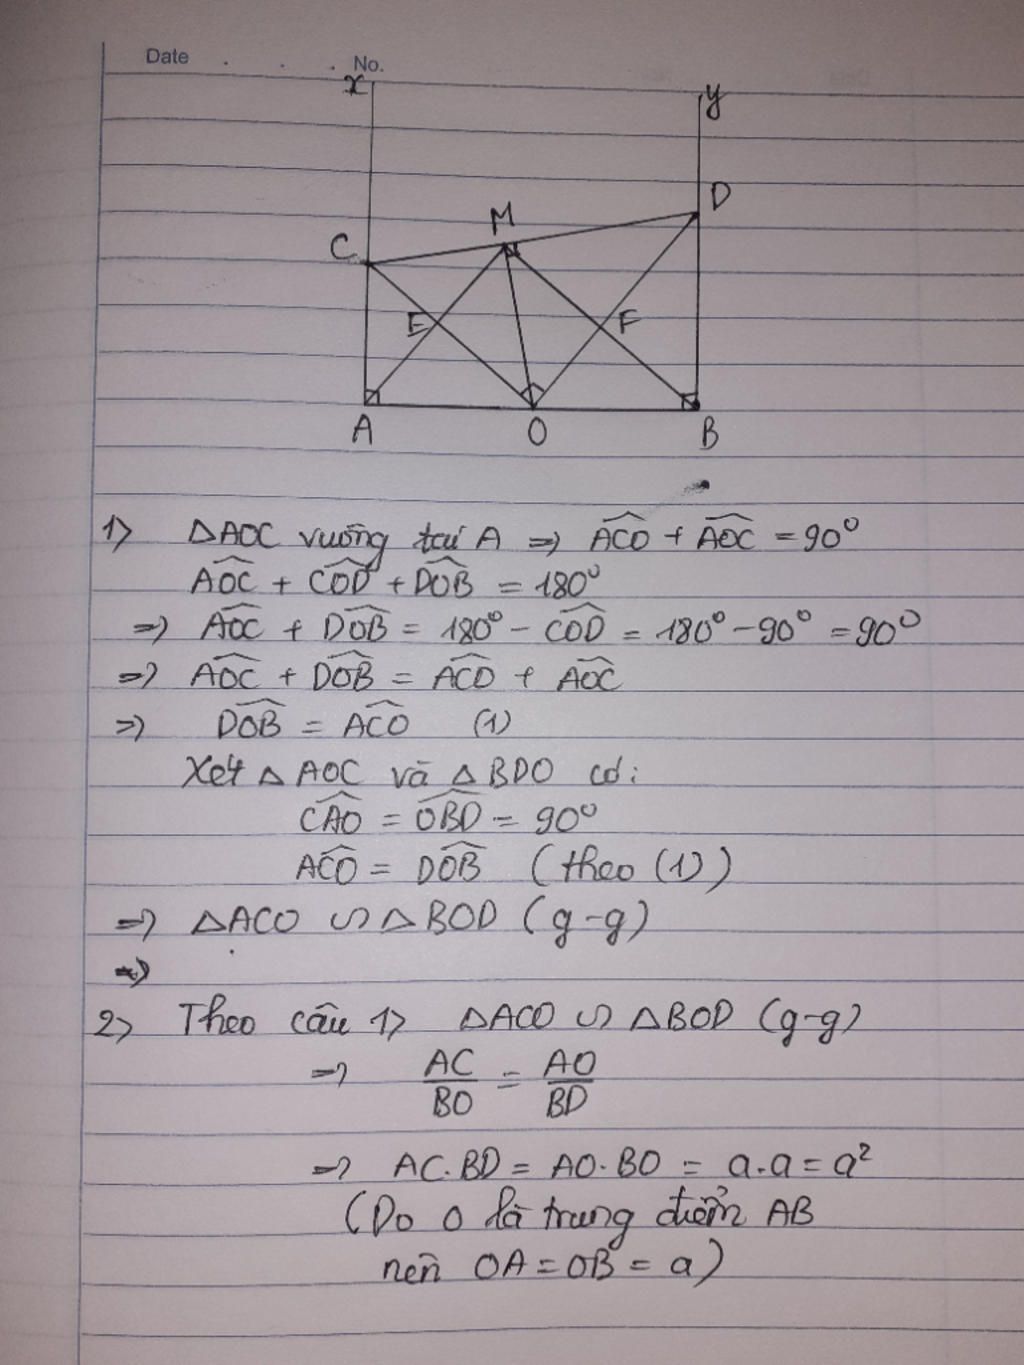 Date . . . No.
x
y
D
M
C
E
F
A
O
B
1) ΔAOC vuông tại A => \widehat{ACO} + \widehat{AOC} = 90°
\widehat{AOC} + \widehat{COD} + \widehat{DOB} = 180°
=> \widehat{AOC} + \widehat{DOB} = 180° - \widehat{COD} = 180° - 90° = 90°
=> \widehat{AOC} + \widehat{DOB} = \widehat{ACO} + \widehat{AOC}
=> \widehat{DOB} = \widehat{ACO} (1)
Xét ΔAOC và ΔBDO có:
\widehat{CAO} = \widehat{OBD} = 90°
\widehat{ACO} = \widehat{DOB} (theo (1))
=> ΔACO ∽ ΔBOD (g-g)
=>
2) Theo câu 1) ΔACO ∽ ΔBOD (g-g)
=> \frac{AC}{BO} = \frac{AO}{BD}
=> AC.BD = AO.BO = a.a = a²
(Do O là trung điểm AB
nên OA = OB = a)